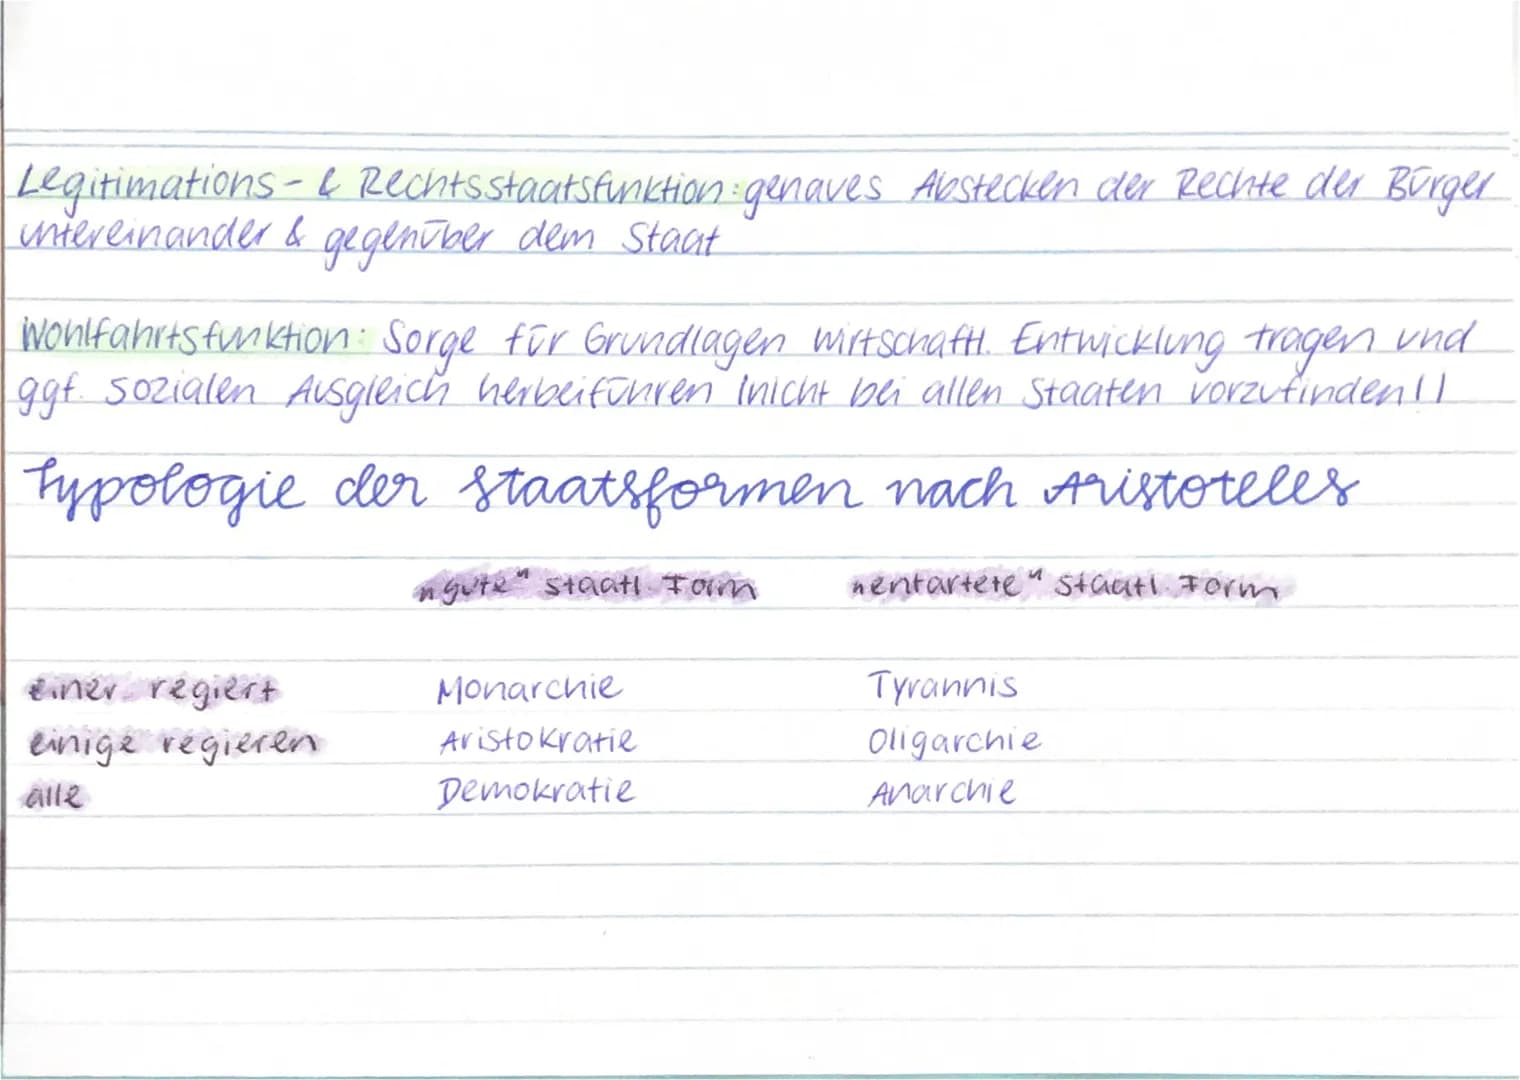 Legitimations- & Rechtsstaatsfunktion: genaues Abstecken der Rechte der Bürger
untereinander & gegenüber dem Staat
Wohlfahrtsfunktion: Sorge für Grundlagen wirtschaftl. Entwicklung tragen und
ggf. sozialen Ausgleich herbeiführen (nicht bei allen Staaten vorzufinden!)
Typologie der Staatsformen nach Aristoteles
„gute“ staatl. Form „entartete“ staatl. Form
einer regiert Monarchie Tyrannis
einige regieren Aristokratie Oligarchie
alle Demokratie Anarchie